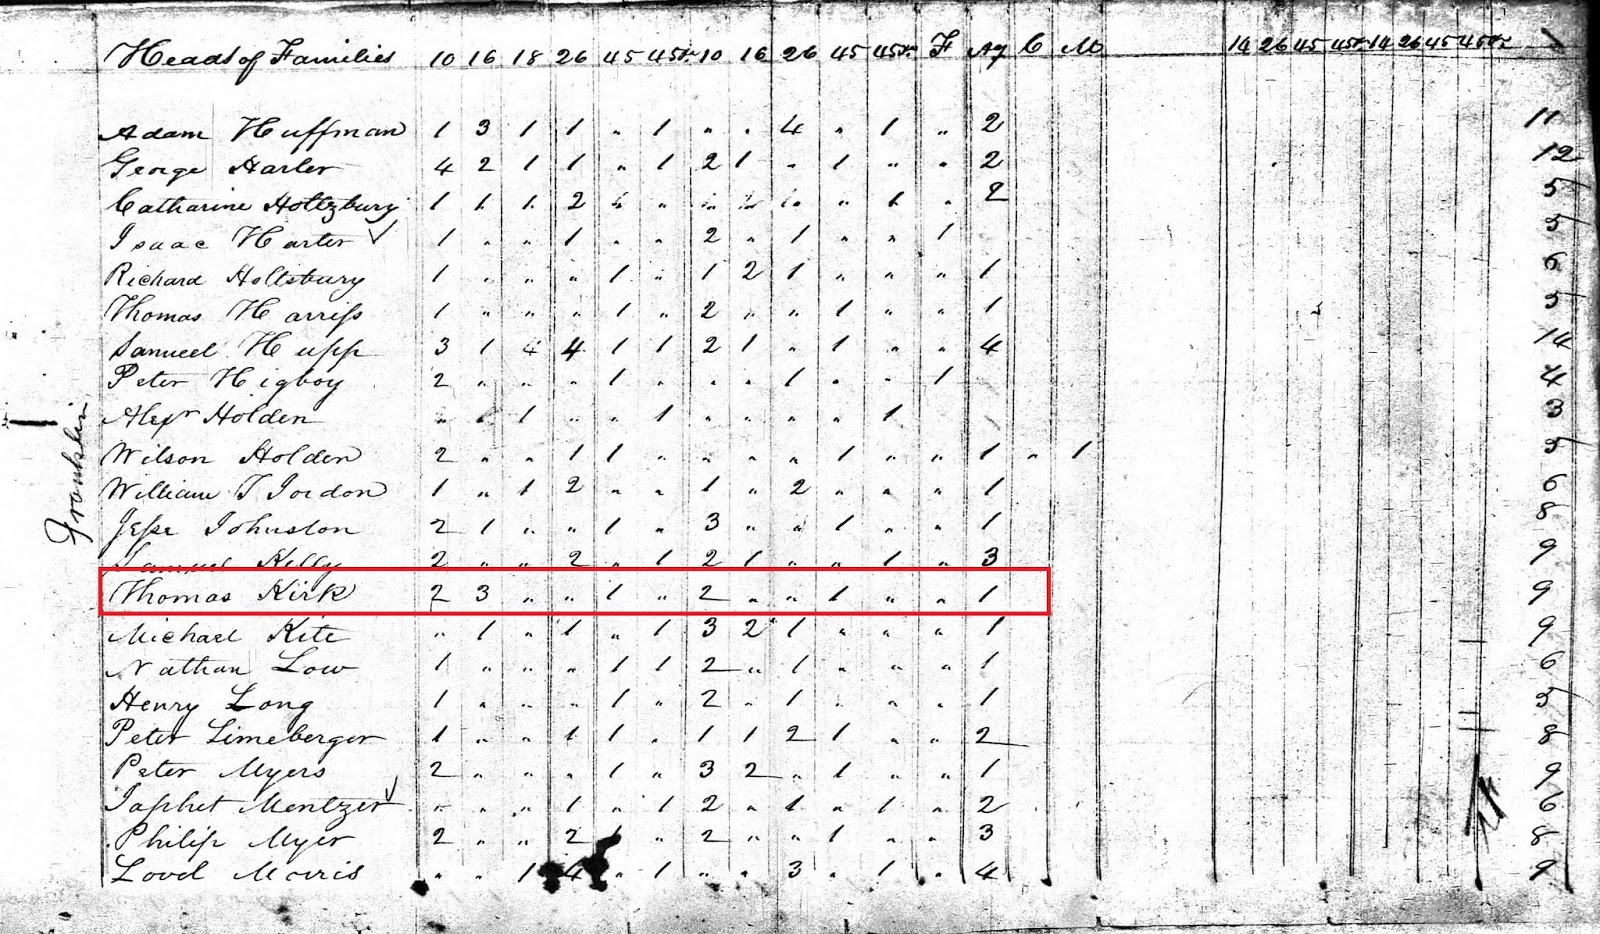 Heads of Families 10 16 18 26 45 45 &c. 10 16 26 45 45 &c. F Ag C M 14 26 45 45 &c. 14 26 45 45 &c.
Adam Huffman 1 3 1 1 " 1 " " 4 " 1 " 2 11
George Harter 4 2 1 1 " 1 2 1 " 1 " " 2 12
Catharine Holtzbury 1 1 1 2 " " " " " " 1 " 2 5
Isaac Harter 1 " " 1 " " 2 " 1 " " 1 5
Richard Holtsbury 1 " " " 1 " 1 2 1 " " " 1 6
Thomas Harriss 1 " " " 1 " 2 " " 1 " " 1 5
Samuel Hupp 3 1 4 4 1 1 2 1 " 1 " " 4 14
Peter Higboy 2 " " " 1 " " " 1 " " 1 4
Alexr Holden " " 1 " " 1 " " " " 1 3
Franklin
Wilson Holden 2 " " 1 1 " " " " 1 " " 1 " 1 5
William T Jordon 1 " 1 2 " " 1 " 2 " " " 1 6
Jesse Johnston 2 1 " " 1 " 3 " " 1 " " 1 8
Samuel Kelly 2 " " 2 " 1 2 1 " " 1 " 3 9
Thomas Kirk 2 3 " " 1 " 2 " " 1 " " 1 9
Michael Kite " 1 " 1 " 1 3 2 1 " " " 1 9
Nathan Low 1 " " " 1 1 2 " 1 " " " 1 6
Henry Long 1 " " " 1 " 2 " 1 " " " 1 5
Peter Limeberger 1 " " 1 1 " 1 1 2 1 " " 2 8
Peter Myers 2 " " " 1 " 3 2 " 1 " " 1 9
Japhet Mentzer " " " 1 " 1 2 " 1 " 1 " 2 6
Philip Myer 2 " " 2 1 " 2 " " 1 " " 3 8
Lovel Morris " " 1 4 " 1 " " 3 " 1 " 4 9